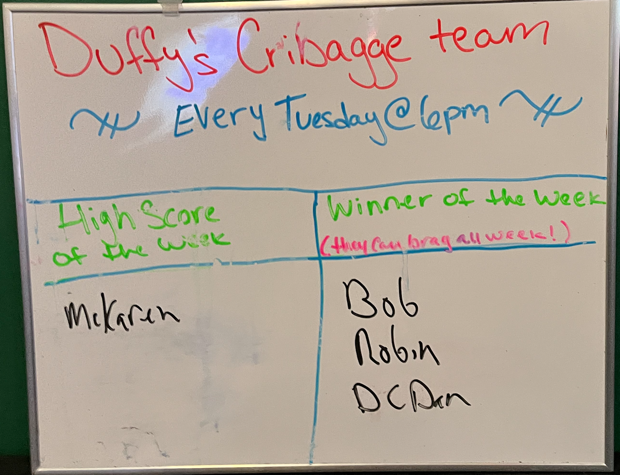 Duffy's Cribagge team
Every Tuesday @ 6pm
High Score
of the Week
Winner of the Week
(they can brag all week!)
McKaren
Bob
Robin
DC Dan